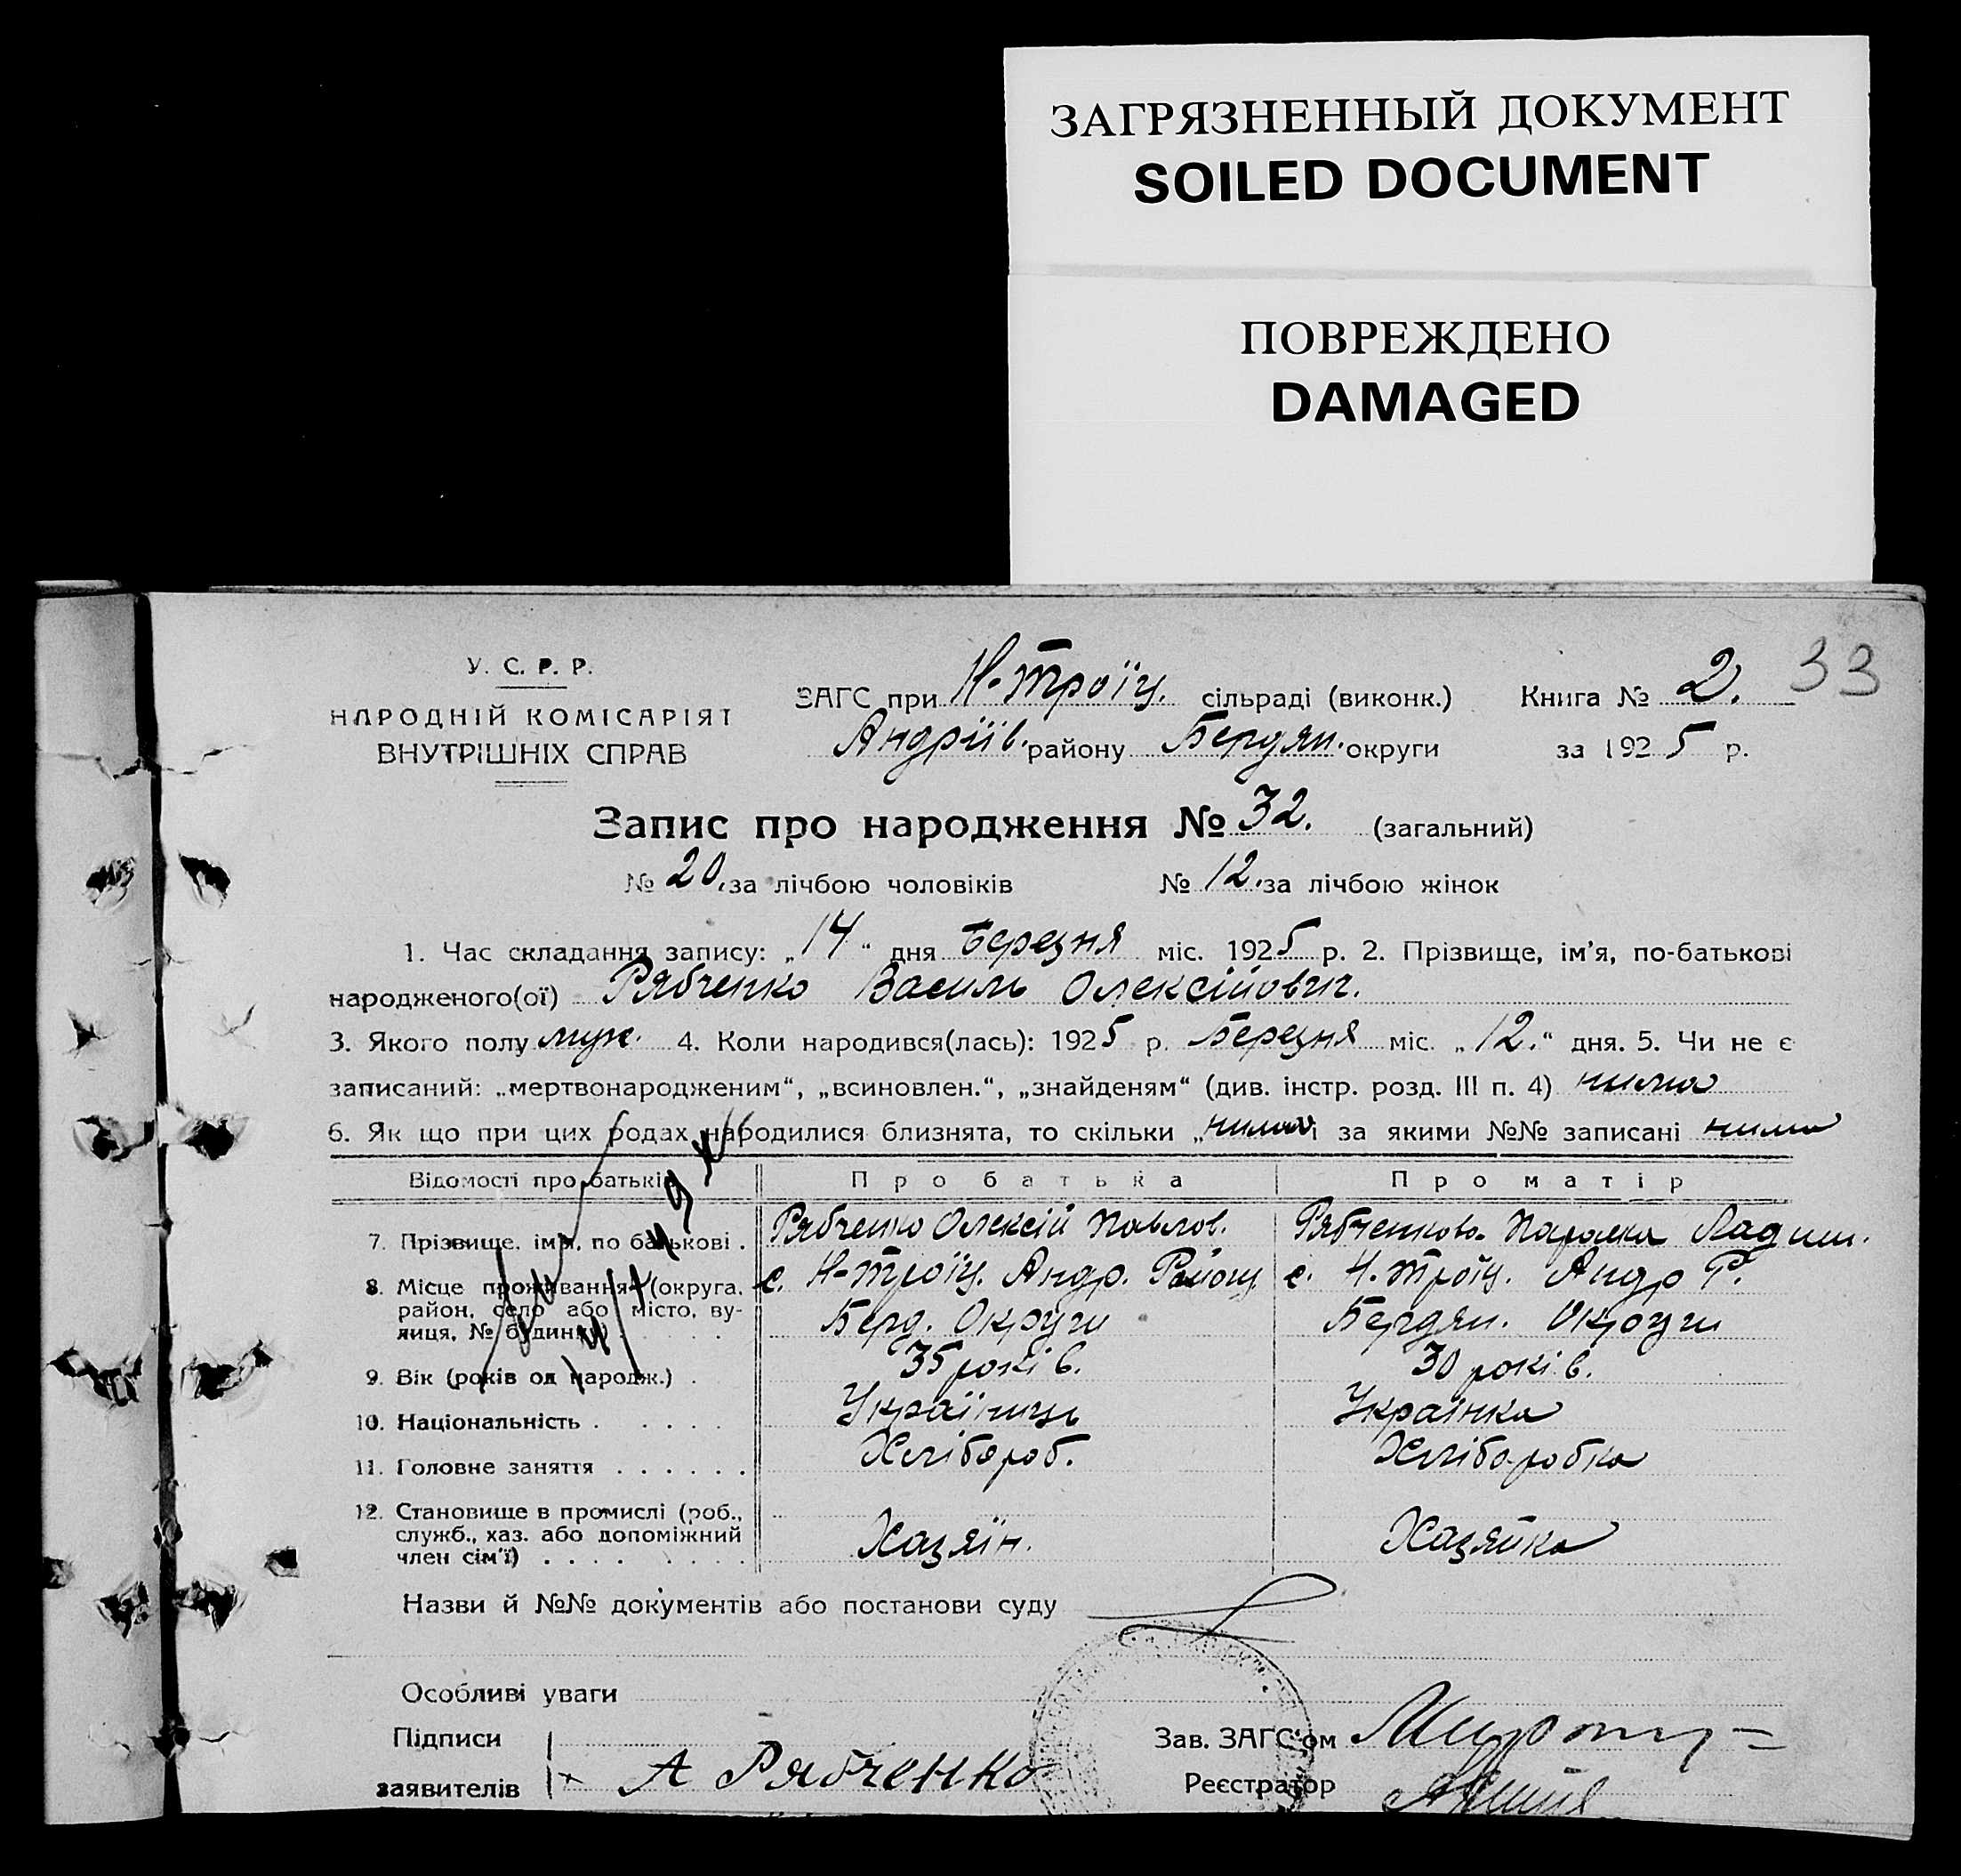 ЗАГРЯЗНЕННЫЙ ДОКУМЕНТ
SOILED DOCUMENT
ПОВРЕЖДЕНО
DAMAGED
33
У. С. Р. Р.
НАРОДНІЙ КОМІСАРІЯТ
ВНУТРІШНІХ СПРАВ
ЗАГС при Н-Троїц. сільраді (виконк.) Книга № 2.
Андріїв. району Бердян. округи за 1925 р.
Запис про народження № 32. (загальний)
№ 20. за лічбою чоловіків № 12. за лічбою жінок
1. Час складання запису: „14“ дня Березня міс. 1925 р. 2. Прізвище, ім’я, по-батькові
народженого(ої) Рябченко Василь Олексійович.
3. Якого полу муж. 4. Коли народився(лась): 1925 р. Березня міс. „12.“ дня. 5. Чи не є
записаний: „мертвонародженим“, „всиновлен.“, „знайденям“ (див. інстр. розд. III п. 4) нима
6. Як що при цих родах народилися близнята, то скільки „нима і за якими №№ записані нима
Відомості про батьків Про батька Про матір
7. Прізвище, ім’я, по батькові . Рябченко Олексій Павлов. Рябченкова Параска
8. Місце проживання (округа, район, село або місто, вулиця, № будинку) с. Н-Троїц. Андр. Району с. Н. Троїц. Андр Р.
Берд. Округи Бердян. Округи
9. Вік (років од народж.) . 35 років. 30 років.
10. Національність . . . . . Україниць Українка
11. Головне заняття . . . . . . Хлібороб. Хліборобка
12. Становище в промислі (роб.,
служб., хаз. або допоміжний
член сім’ї) . . . . Хазяїн. Хазяйка
Назви й №№ документів або постанови суду
Особливі уваги
Підписи Зав. ЗАГС’ом
заявителів А Рябченко Реєстратор